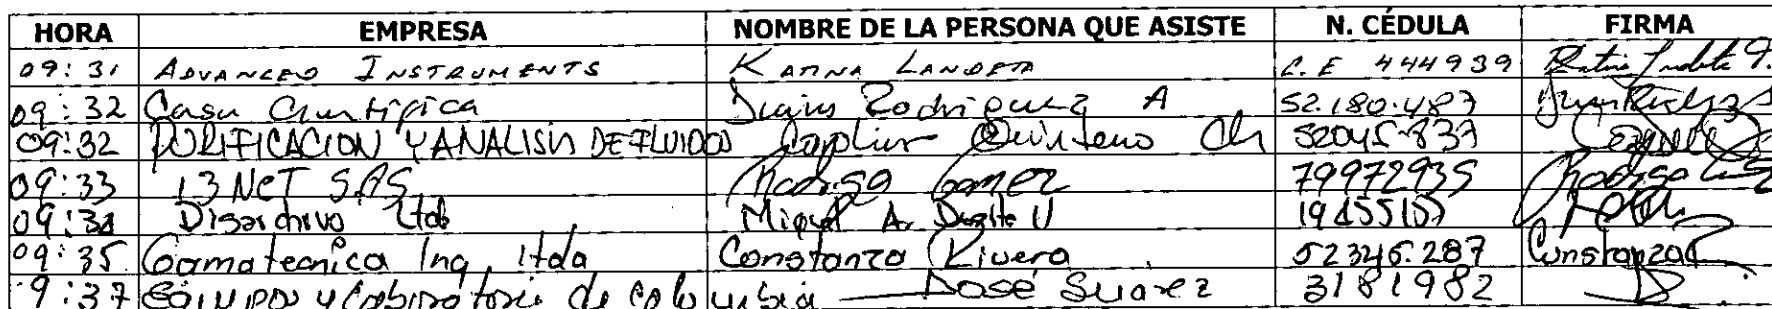 HORA EMPRESA NOMBRE DE LA PERSONA QUE ASISTE N. CÉDULA FIRMA
09:31 ADVANCED INSTRUMENTS KATINA LANDETA C.E 444939
09:32 Casa Científica Rodriguez A 52.180.487
09:32 PURIFICACION Y ANALISIS DE FLUIDOS Quintero Ch 52045837
09:33 13 NET S.A.S Rodrigo Gomez 79972935 Rodrigo
09:34 Disarchivo Ltda Miguel A. 19455157
09:35 Gamatecnica Ing. ltda Constanza Rivera 52346.287 Constanza R
9:37 equipos y laboratorio de colombia José Suarez 3181982